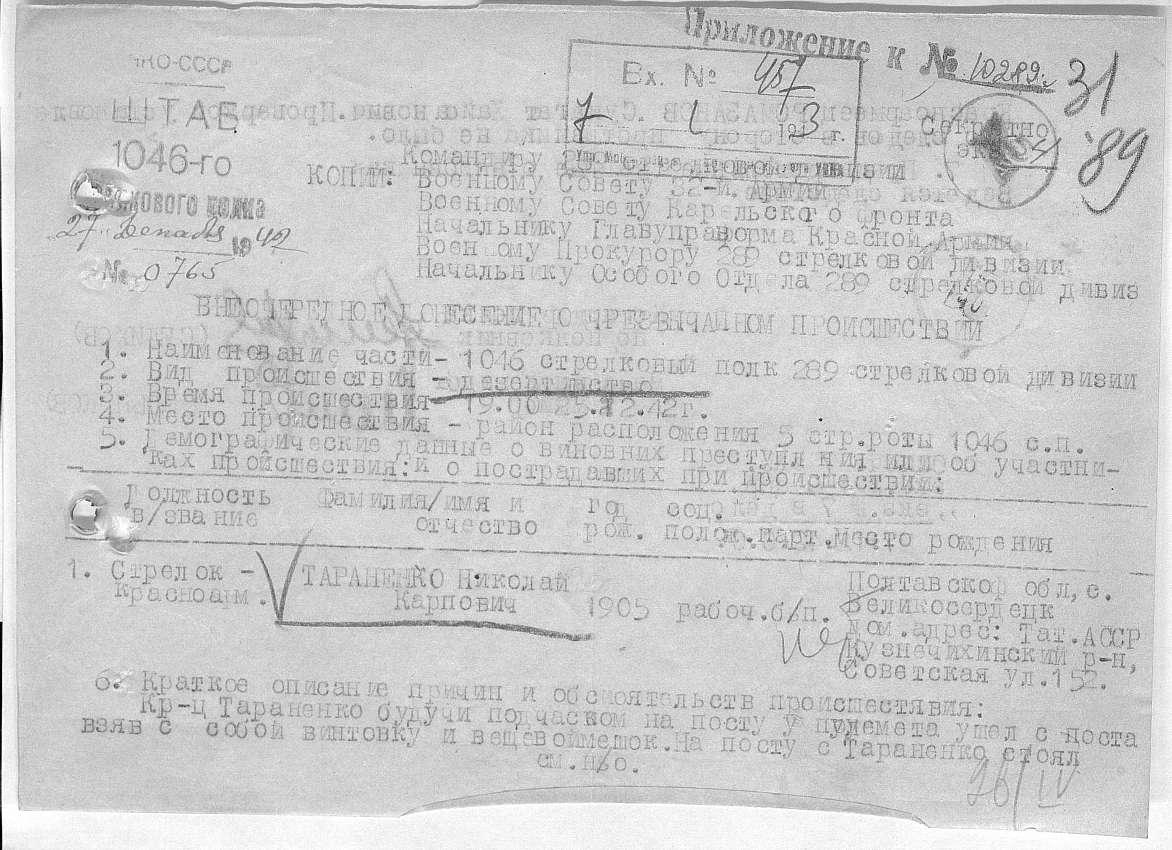 Приложение к № 10289с
31
89
НКО-СССР
ШТАБ
1046-го
стрелкового полка
"27" декабря 1942
№ 0765
Вх. № 457
7 1 193 г.
Секретно
экз.
Командиру 289 стрелковой дивизии.
КОПИИ: Военному Совету 32-й Армии
Военному Совету Карельского фронта
Начальнику Главупраформа Красной Армии
Военному Прокурору 289 стрелковой дивизии
Начальнику Особого Отдела 289 стрелковой дивиз
ВНЕОЧЕРЕДНОЕ ДОНЕСЕНИЕ О ЧРЕЗВЫЧАЙНОМ ПРОИСШЕСТВИИ
1. Наименование части- 1046 стрелковый полк 289 стрелковой дивизии
2. Вид происшествия - дезертирство
3. Время происшествия 19.00 25.12.42г.
4. Место происшествия - район расположения 5 стр.роты 1046 с.п.
5. Демографические данные о виновних преступл ния или об участни-
ках происшествия:и о пострадавших при происшествии:
Должность Фамилия/имя и год соц.
в/звание отчество рож. полож.парт.Место рождения
1. Стрелок - ТАРАНЕНКО Николай Полтавской обл,с.
Красноарм. Карпович 1905 рабоч.б/п. Великосердецк
Дом.адрес: Тат.АССР
Кузнечихинский р-н,
Советская ул.152.
6. Краткое описание причин и обсиоятельств происшествия:
Кр-ц Тараненко будучи подчаском на посту у пулемета ушел с поста
взяв с собой винтовку и вещевоймешок.На посту с Тараненко стоял
см.н/об.
26/IV